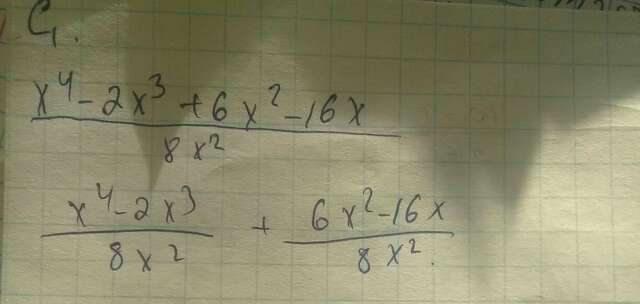 C₁.
x⁴-2x³+6x²-16x
8x²
x⁴-2x³ + 6x²-16x
8x² 8x².